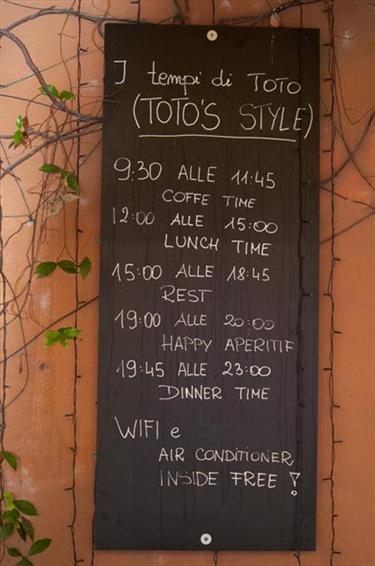 I tempi di TOTO
(TOTO'S STYLE)
9:30 ALLE 11:45
COFFE TIME
12:00 ALLE 15:00
LUNCH TIME
15:00 ALLE 18:45
REST
19:00 ALLE 20:00
HAPPY APERITIF
19:45 ALLE 23:00
DINNER TIME
WIFI e
AIR CONDITIONER
INSIDE FREE!